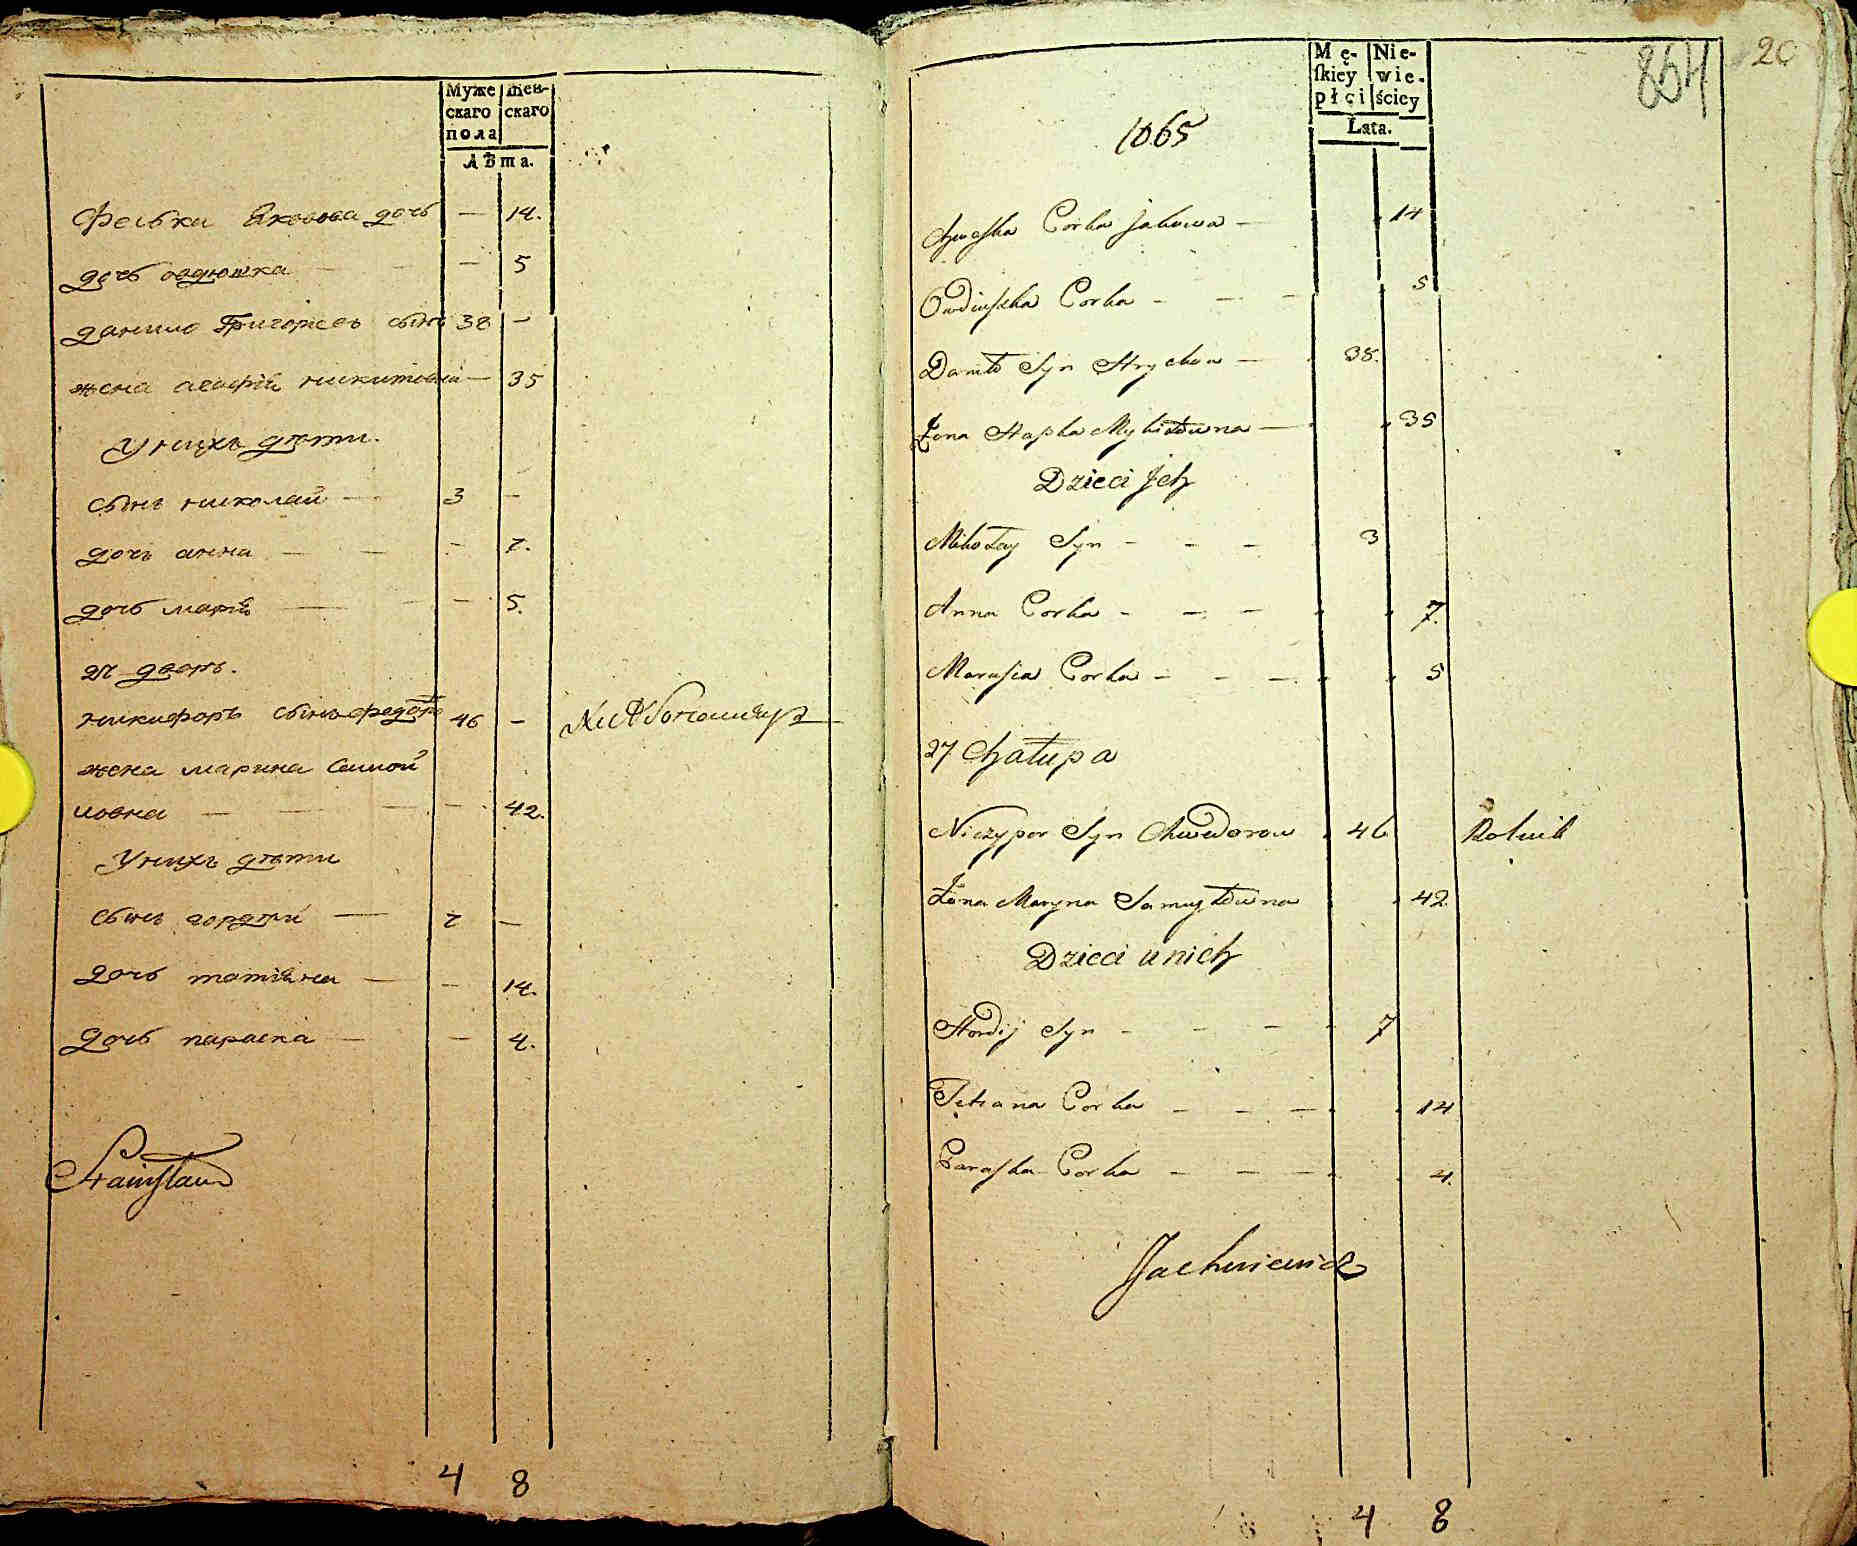 Муже
скаго
пола
Жен-
скаго
Лѣта.
Феська Яковова дочь — 14.
дочь овдюшка — — — 5
данило Григорьевъ сынъ 38 —
жена агафія никитовна — 35
У нихъ дѣти.
сынъ николай — 3 —
дочь анна — — — 7.
дочь марія — — — 5.
дворъ.
никифоръ сынъ федоровъ 46 —
жена марина Самой
ловна — — — — 42.
У нихъ дѣти
сынъ гордѣй — 7 —
дочь татіяна — — 14.
дочь параска — — 4.
Stanisław
4 8
854
20
Mę-
ſkiey
płci
Nie-
wie-
ściey
Lata.
1065
Corka Jakowa — 14
Owdiuszka Corka - — — 5
Daniło Syn Hrychow — 38.
Żona Hapka Mykitowna — 35
Dzieci Jch
Mikołay Syn - - - 3
Anna Corka - - - 7.
Marusia Corka - - - 5
27 Chałupa
Niczypor Syn Chwedorow 46 Rolnik
Żona Maryna Samuyłowna 42.
Dzieci u nich
Hordij Syn - - - 7
Tetiana Corka - - - 14
Paraska Corka - - - 4.
Jachniewicz
4 8